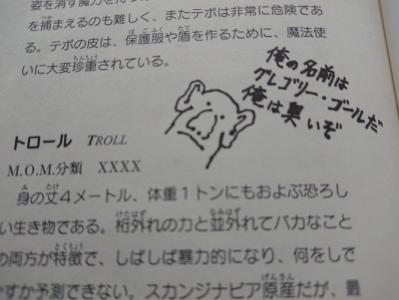 姿を消す魔力を持つ
を捕まえるのも難しく、またテボは非常に危険であ
る。テボの皮は、保護服や盾を作るために、魔法使
いに大変珍重されている。
俺の名前は
グレゴリー・ゴールだ
俺は臭いぞ
トロール TROLL
M.O.M.分類 XXXX
身の丈4メートル、体重1トンにもおよぶ恐ろし
い生き物である。桁外れの力と並外れてバカなこと
の両方が特徴で、しばしば暴力的になり、何をして
すか予測できない。スカンジナビア原産だが、最